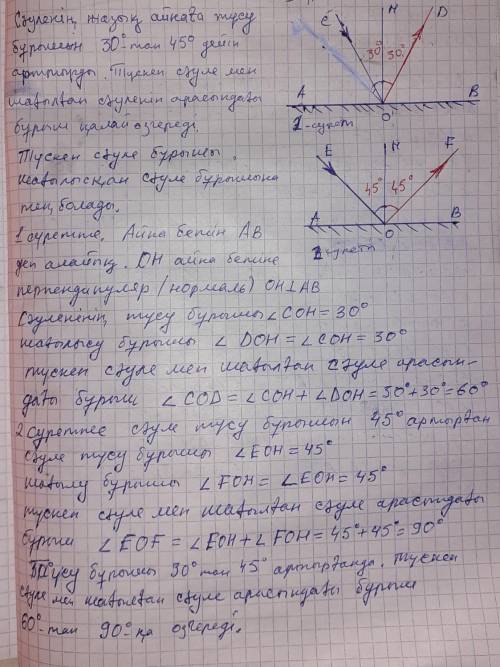 Сәуленің жазық айнаға түсу
бұрышын 30°-тан 45° дейін
арттырды. Түскен сәуле мен
шағылған сәуленің арасындағы
бұрыш қалай өзгереді.
Түскен сәуле бұрышы
шағылысқан сәуле бұрышына
тең болады.
1 суретте. Айна бетін AB
деп алайық. OH айна бетіне
перпендикуляр (нормаль) OH⊥AB
Сәуленің түсу бұрышы ∠COH = 30°
шағылысу бұрышы ∠DOH = ∠COH = 30°
түскен сәуле мен шағылған сәуле арасын-
дағы бұрыш ∠COD = ∠COH + ∠DOH = 30° + 30° = 60°
2 суретте сәуле түсу бұрышын 45° арттырған
сәуле түсу бұрышы ∠EOH = 45°
шағылу бұрышы ∠FOH = ∠EOH = 45°
түскен сәуле мен шағылған сәуле арасындағы
бұрыш ∠EOF = ∠EOH + ∠FOH = 45° + 45° = 90°
Түсу бұрышы 30° тан 45° арттырғанда. Түскен
сәуле мен шағылған сәуле арасындағы бұрыш
60°-тан 90°-қа өзгереді.
C H D
30° 30°
A O B
1-сурет
E H F
45° 45°
A O B
2-сурет